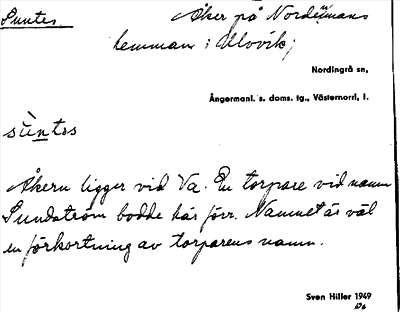 Suntes Åker på Nordanmans
hemman i Ullvik;
Nordingrå sn,
Ångermanl. s. doms. tg., Västernorrl. l.
sùntes
Åkern ligger vid Va. En torpare vid namn
Sundström bodde här förr. Namnet är väl
en förkortning av torparens namn.
Sven Hiller 1949